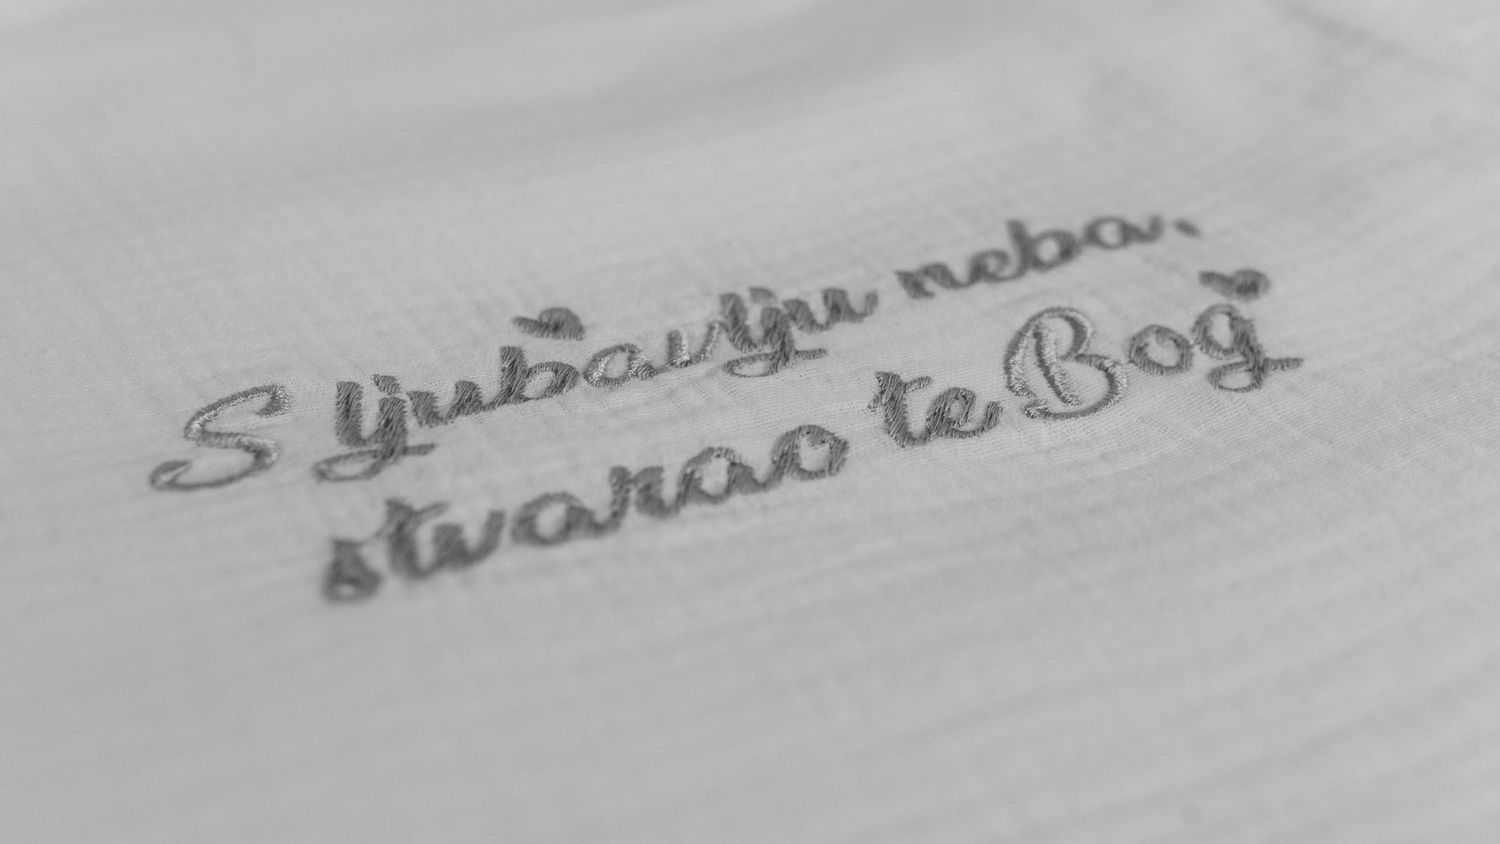 S ljubavlju neba,
stvarao te Bog